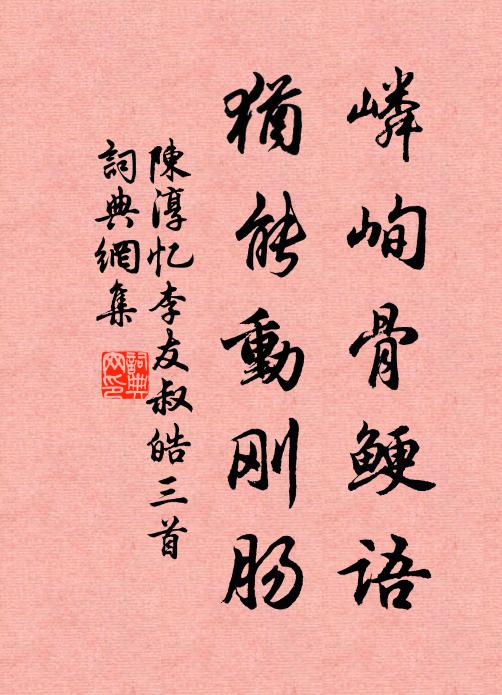 嶙峋骨鲠语
猶能動刚肠
陳淳忆李友叔皓三首
詞典網集
詞典網印